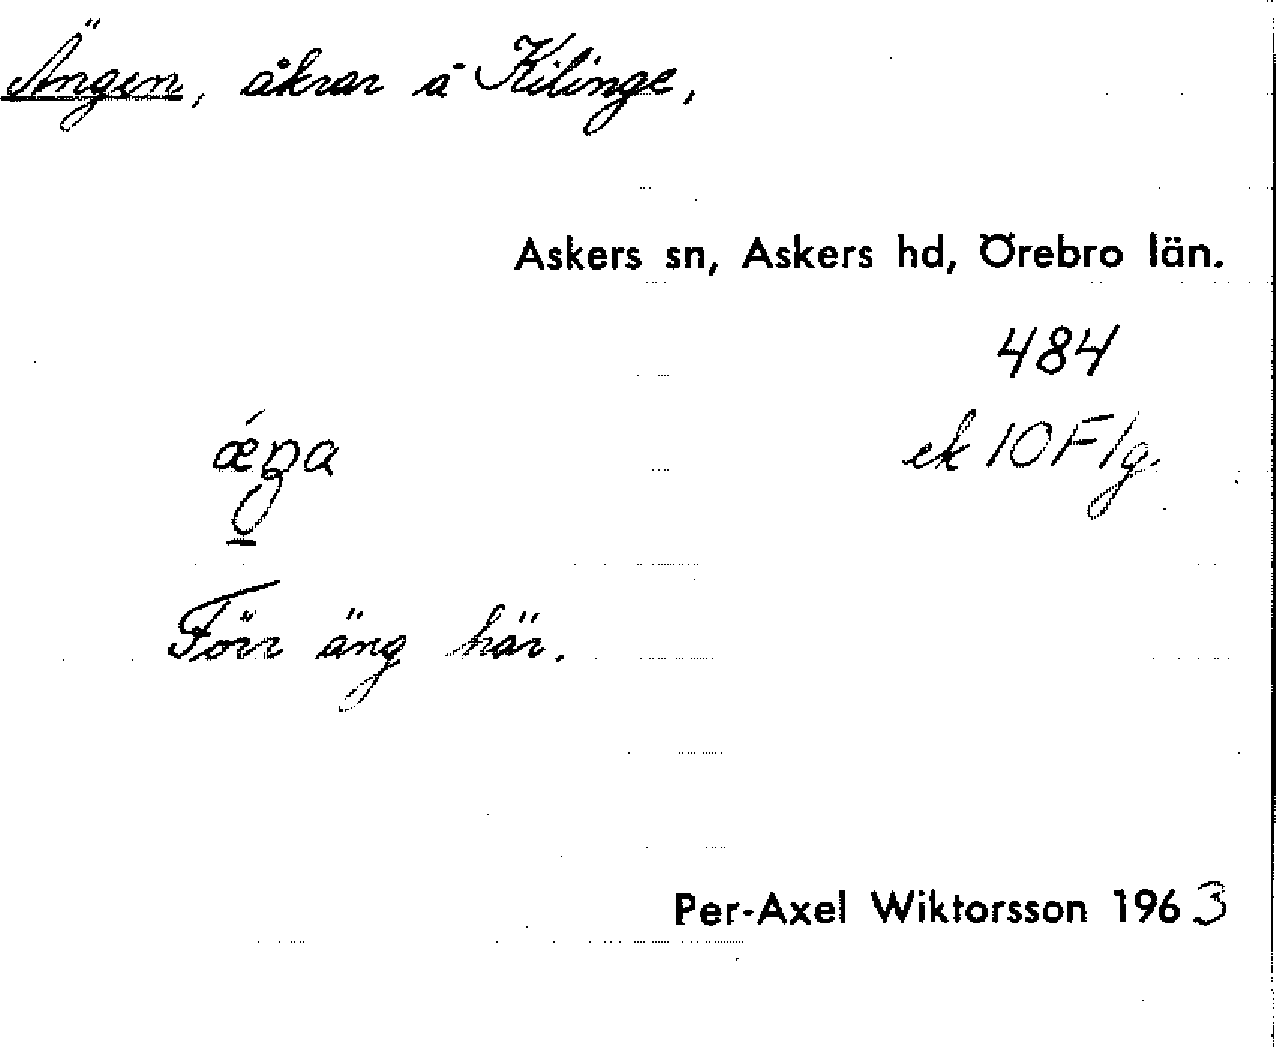 Ängen, åkrar å Kilinge,
Askers sn, Askers hd, Örebro län.
484
ek 10 F/g.
Förr äng här.
Per-Axel Wiktorsson 1963